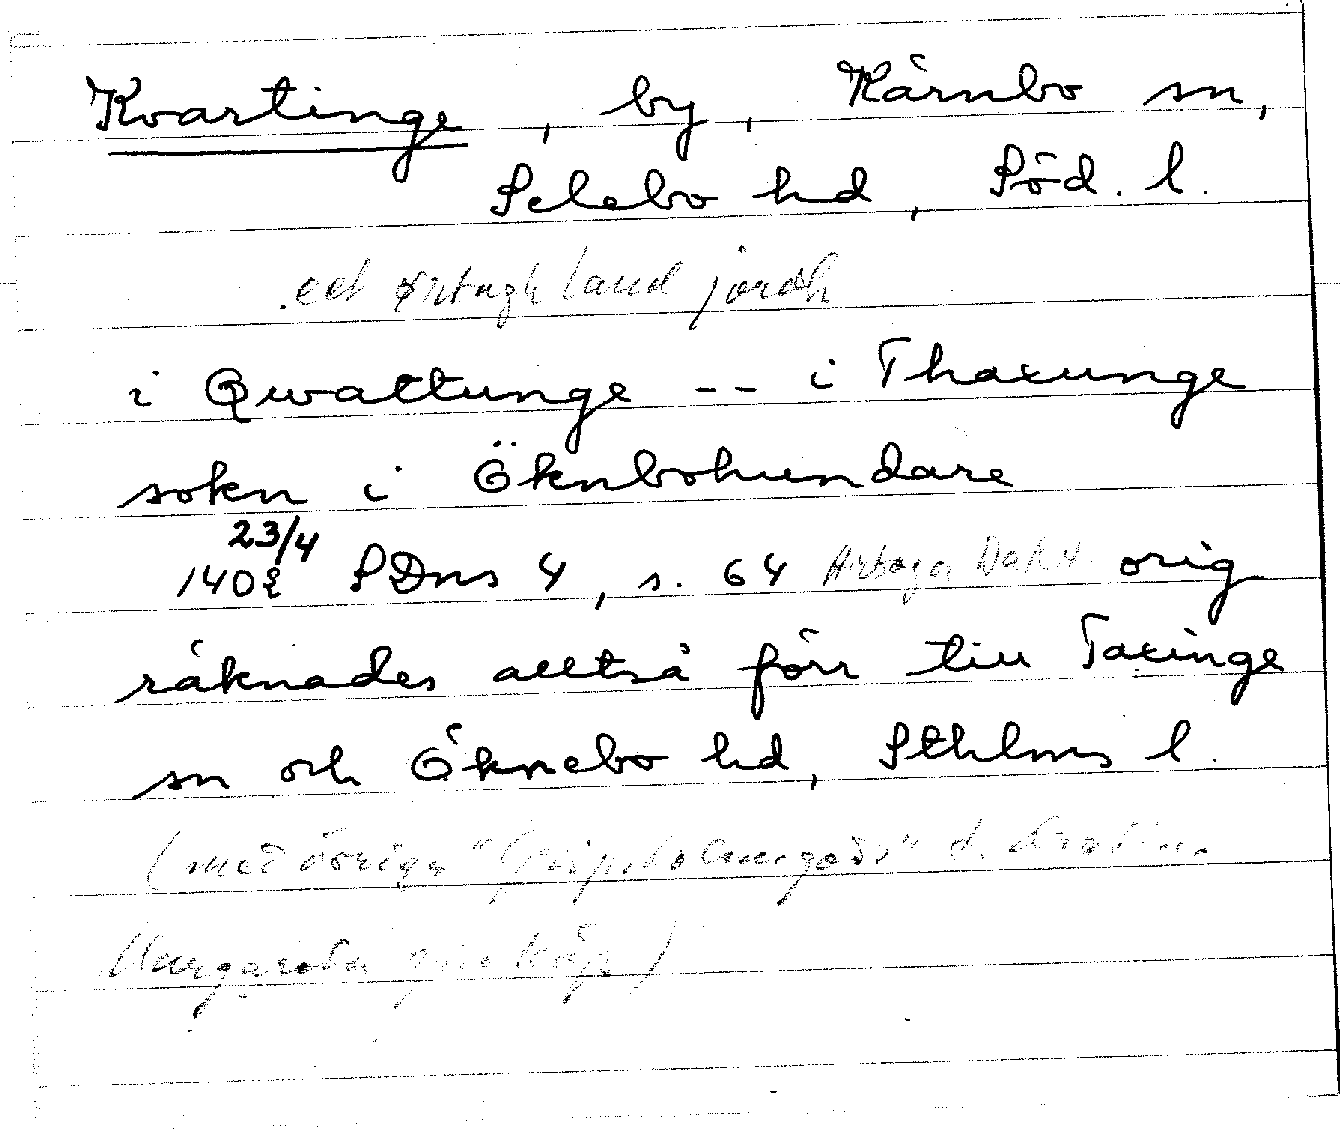 Kvartinge, by, Kärnbo sn,
Selebo hd, Söd. l.
eet ørtugh land jordh
i Qwattunge -- i Thaxunge
sokn i Öknbohundare
23/4
1402 SDns 4, s. 64 Arboga orig
räknades alltså förr till Taxinge
sn och Öknebo hd, Sthlms l.
(med övriga "Gripsholmsgods" d.
Margareta köp)